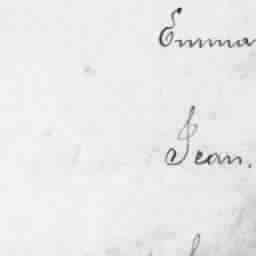 Emma
Jean.